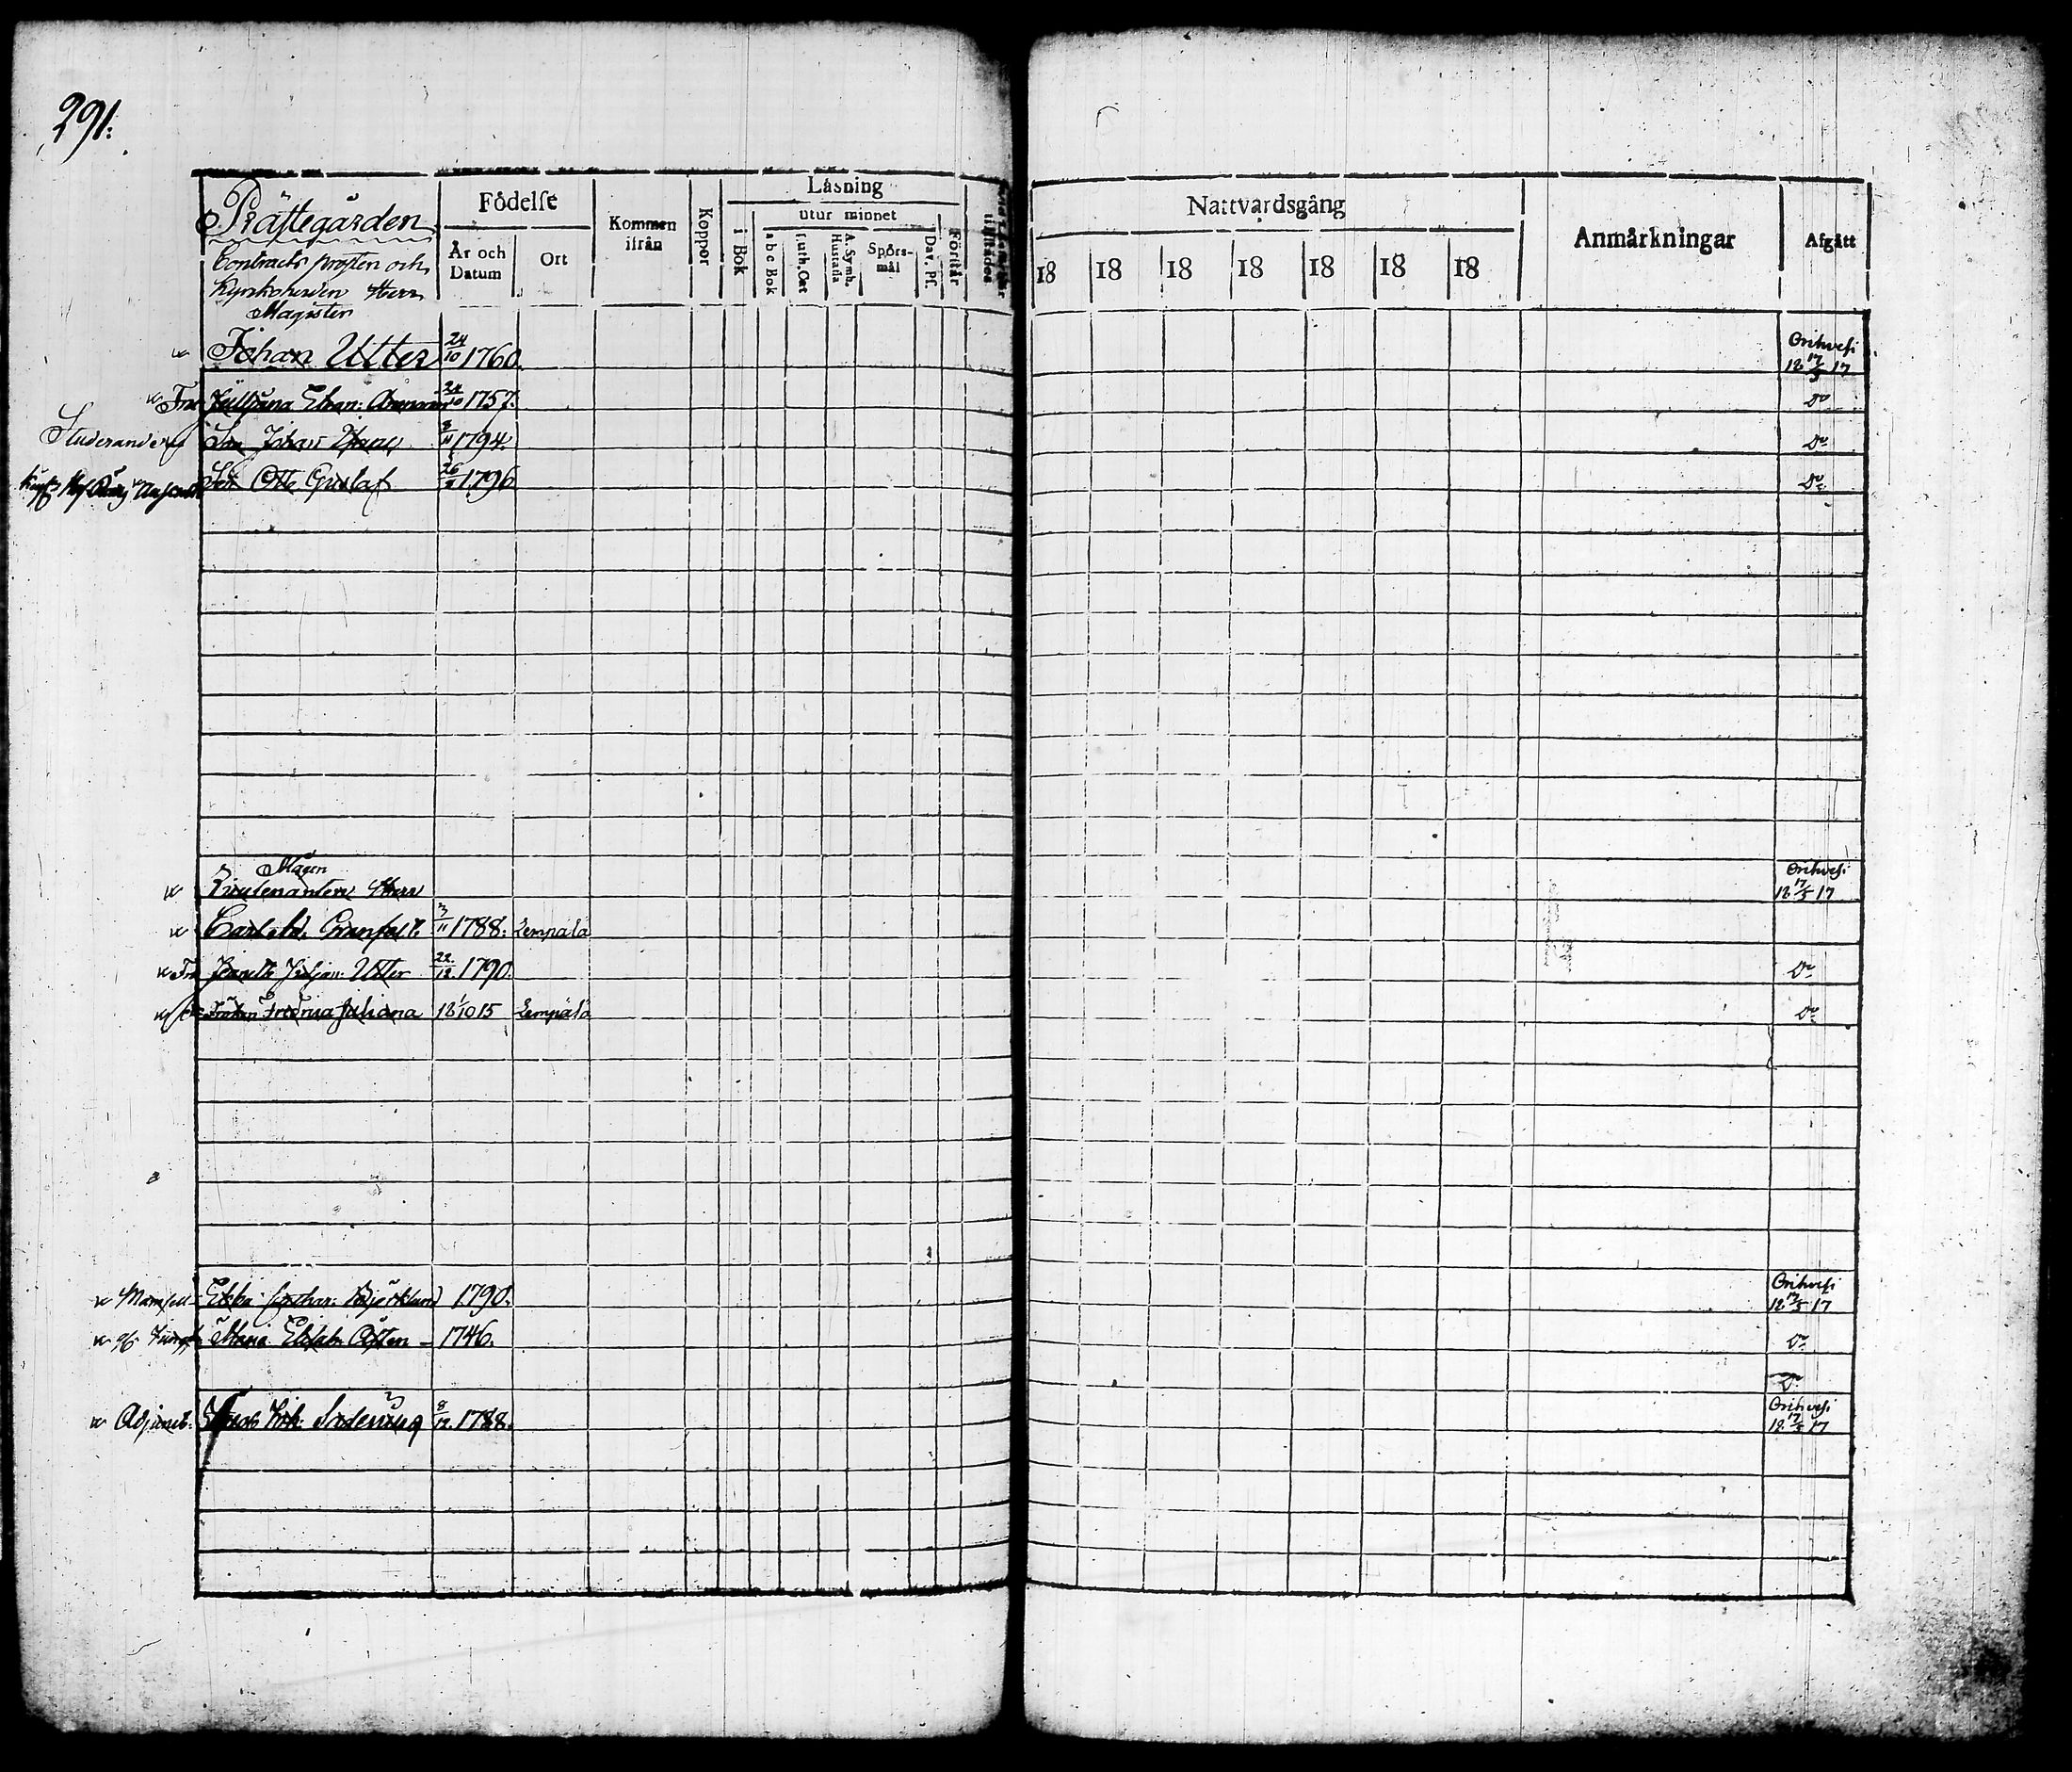 291:
Prästegården
Contracts prosten och
Kyrkoherden Herr
Magister
Födelse
År och Datum
Ort
Kommen ifrån
Koppor
Läsning
i Bok
utur minnet
a b c Bok
Luth. Cat
A. Symb. Hustafla
Spörs-mål
Dav. Ps.
Förstår
Nattvardsgång
18 18 18 18 18 18 18
Anmärkningar
Afgått
Johan Utter 24/10 1760. Orihvesi 18 17/3 17
Fru Juliana Elean: 24/10 1757. Do
Studerande Son Johan 8/11 1794. Do
Son Otto Gustaf 26/ 1796 Do
Mågen
Lieutenanten Herr Orihvesi 18 17/3 17
Carl Ad. Granfelt. 3/11 1788. Lempälä
Fru Jeanette Julian: Utter 22/12. 1790. Do
Fröken Fredrica Juliana 18 1/10 15 Lempälä Do
Mamsell Ebba Cathar: Björklund 1790. Orihvesi 18 17/3 17
Maria Elisab: 1746. Do
Do
Adjunct. Joh: Söderling 8/12. 1788. Orihvesi 18 17/3 17